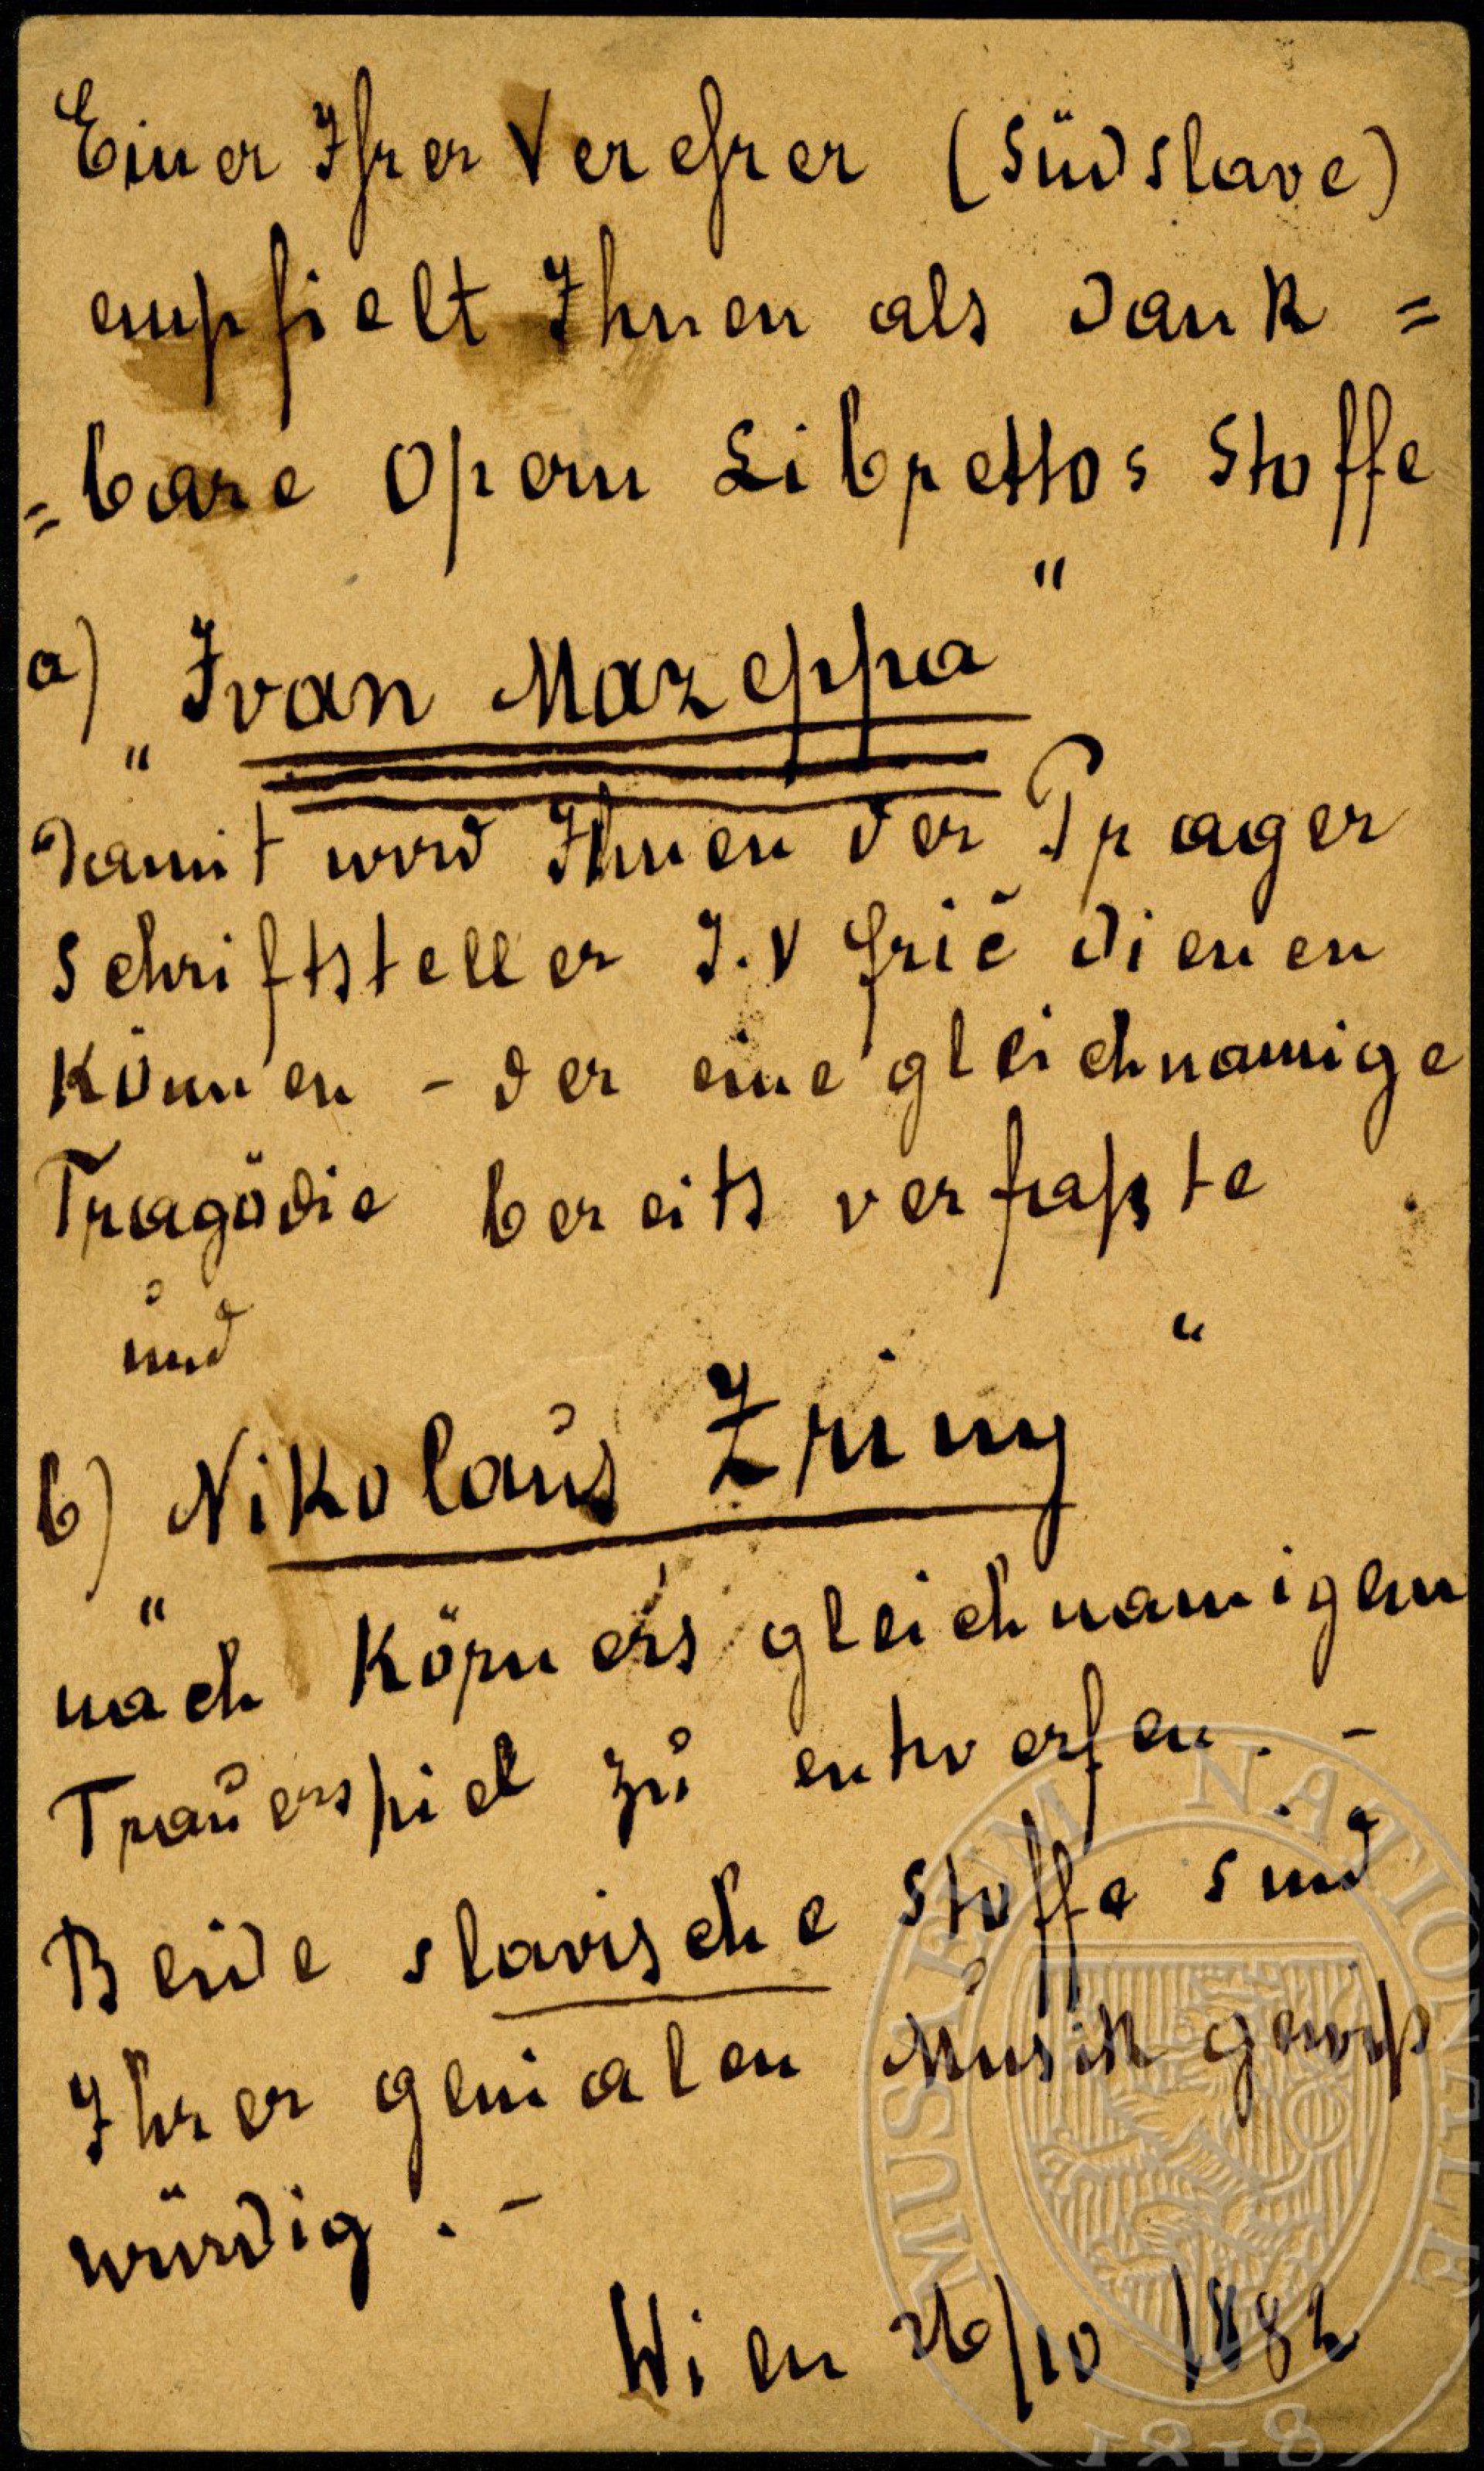 Einer Ihrer Verehrer (Südslave)
empfielt Ihnen als dank=
=bare Opern Librettos Stoffe
a) „Ivan Mazeppa“
Damit wird Ihnen der Prager
Schriftsteller J. V Frič dienen
können - der eine gleichnamige
Tragödie bereits verfaßte .
und
b) „Nikolaus Zriny“
nach Körners gleichnamigem
Trauerspiel zu entwerfen. -
Beide slavische Stoffe sind
Ihrer genialen Musik gewiß
würdig. -
Wien 26/10 1882
MUSEUM NATIONALE
1818